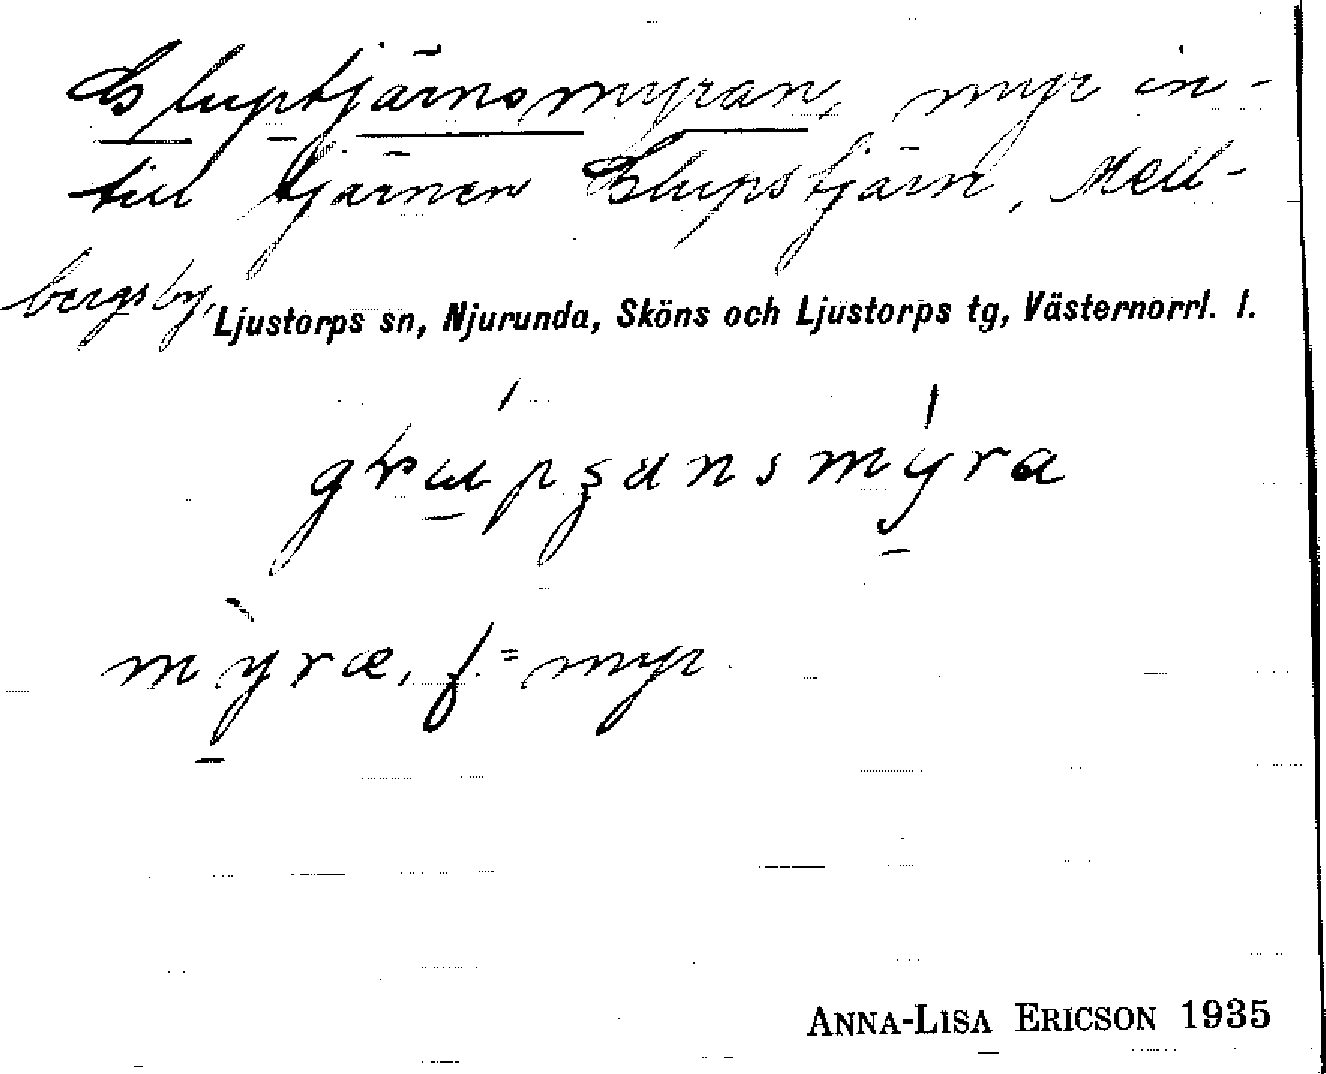 Gluptjärnsmyran, myr in-
till tjärnen Glupstjärn, Mell-
bergsby, Ljustorps sn, Njurunda, Sköns och Ljustorps tg, Västernorrl. l.
myræ, f. = myr
ANNA-LISA ERICSON 1935